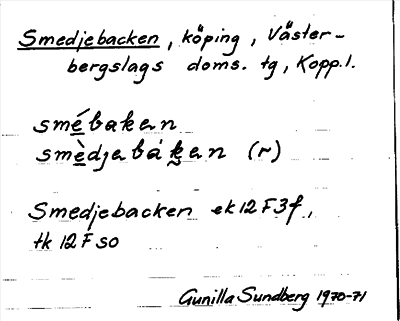 Smedjebacken, köping, Väster-
bergslags doms. tg, Kopp.l.
smé̱baken
smè̱djebák̬en (r)
Smedjebacken ek 12 F 3f,
tk 12 F so
Gunilla Sundberg 1970-71